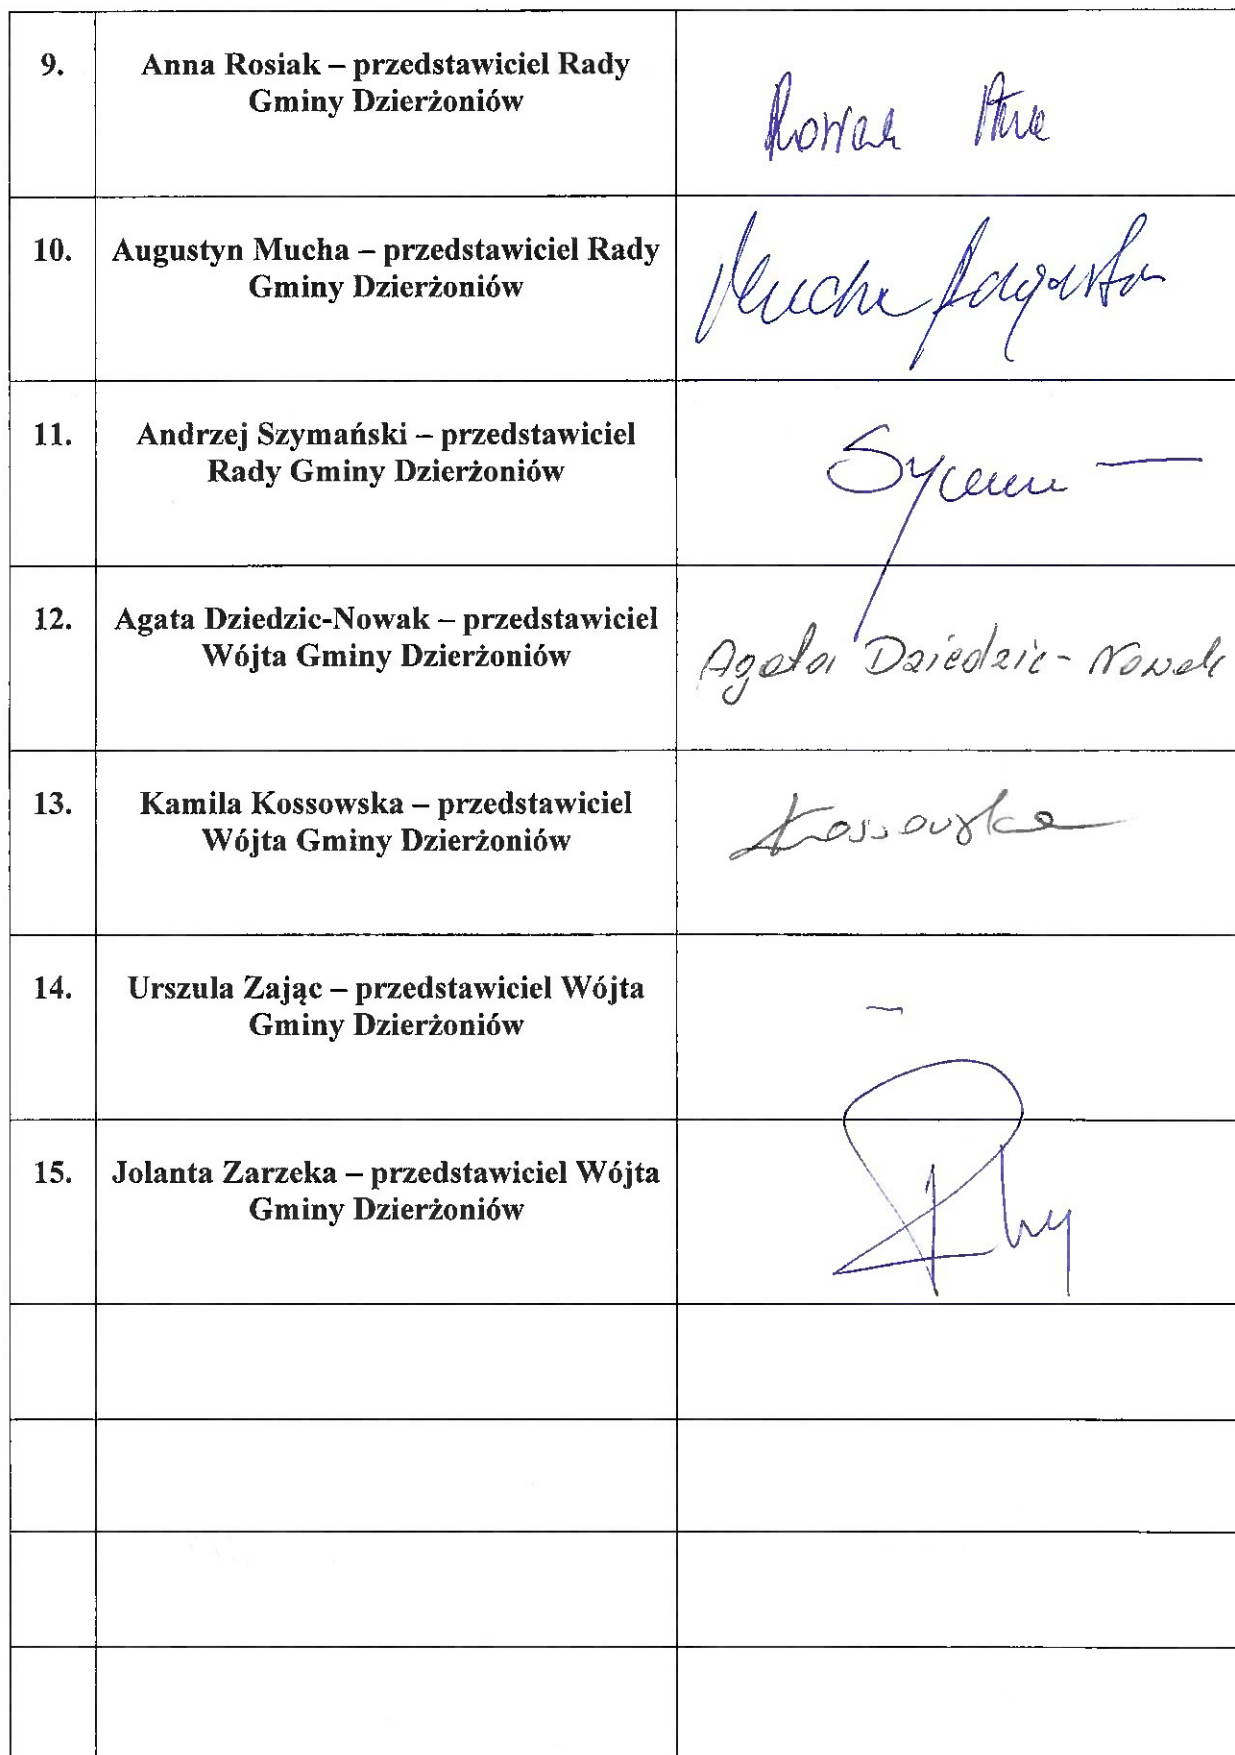 9. Anna Rosiak – przedstawiciel Rady
Gminy Dzierżoniów
10. Augustyn Mucha – przedstawiciel Rady
Gminy Dzierżoniów
Mucha Augustyn
11. Andrzej Szymański – przedstawiciel
Rady Gminy Dzierżoniów
12. Agata Dziedzic-Nowak – przedstawiciel
Wójta Gminy Dzierżoniów
Agata Dziedzic-Nowak
13. Kamila Kossowska – przedstawiciel
Wójta Gminy Dzierżoniów
Kossowska
14. Urszula Zając – przedstawiciel Wójta
Gminy Dzierżoniów
–
15. Jolanta Zarzeka – przedstawiciel Wójta
Gminy Dzierżoniów